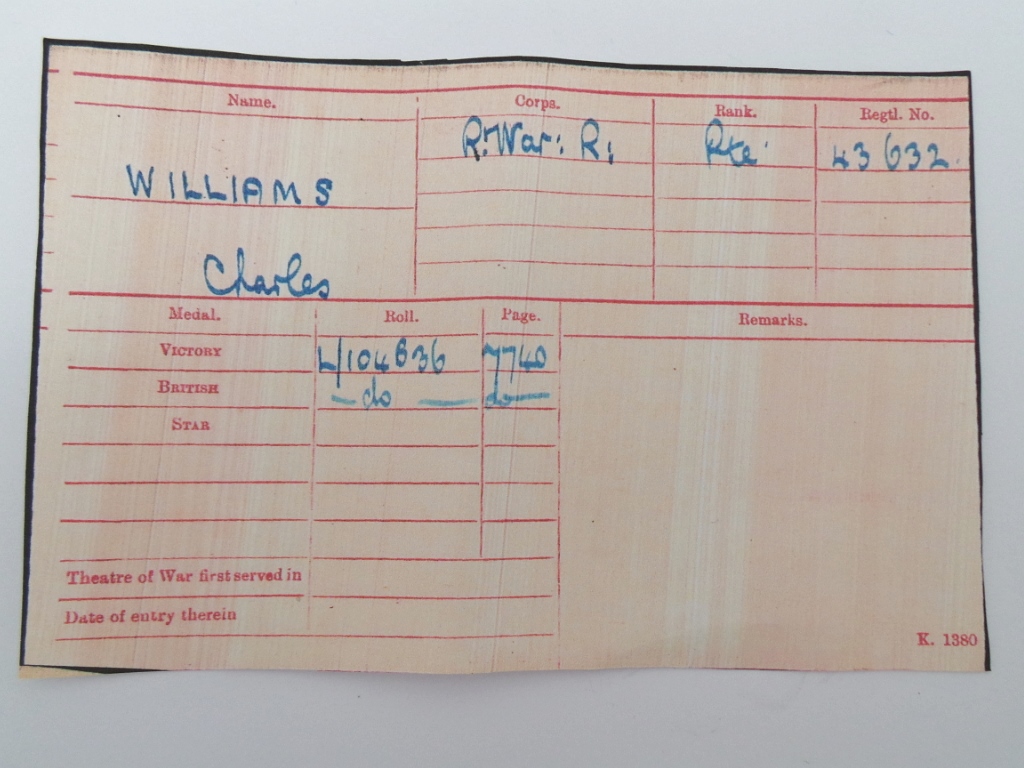 Name. Corps. Rank. Regtl. No.
R. War: R: Pte. 43632.
WILLIAMS
Charles
Medal. Roll. Page. Remarks.
VICTORY L/104B36 7740
BRITISH — do — do —
STAR
Theatre of War first served in
Date of entry therein
K. 1380